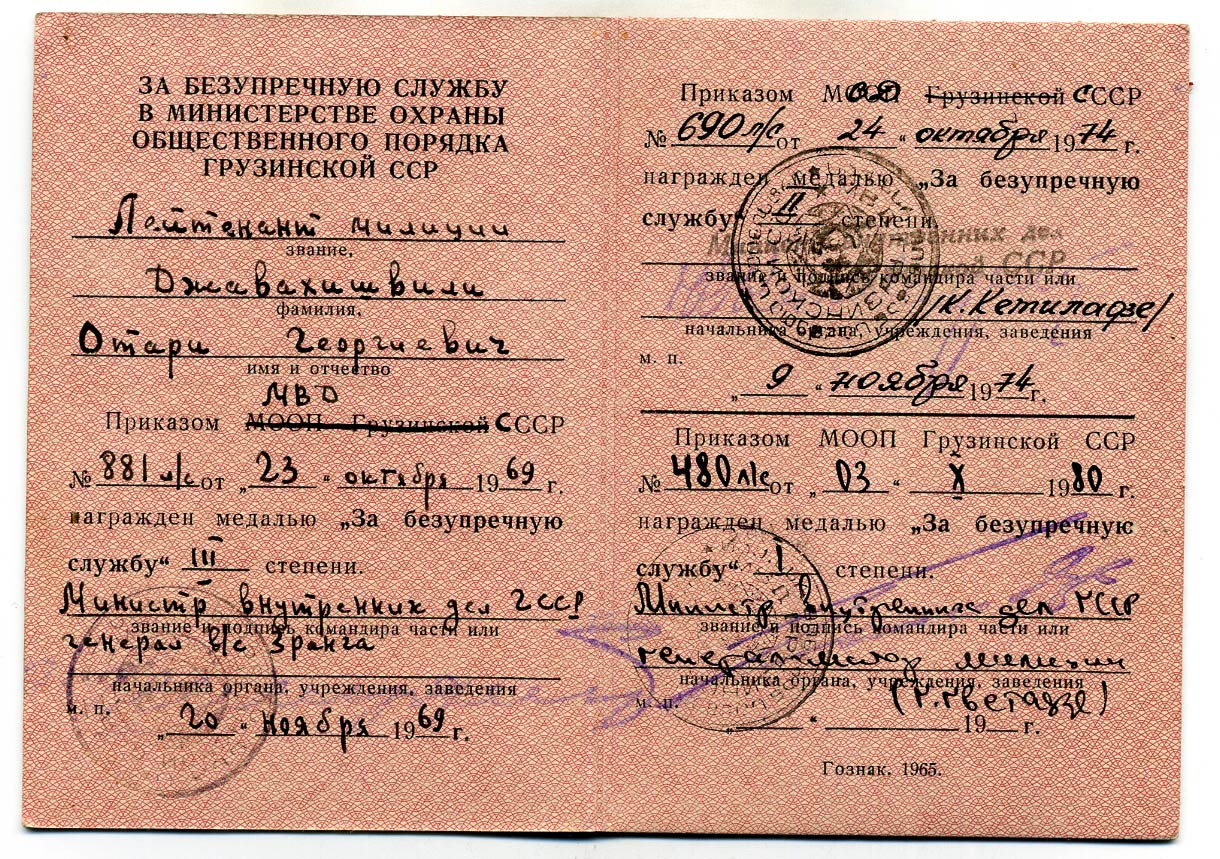 ЗА БЕЗУПРЕЧНУЮ СЛУЖБУ
В МИНИСТЕРСТВЕ ОХРАНЫ
ОБЩЕСТВЕННОГО ПОРЯДКА
ГРУЗИНСКОЙ ССР
Лейтенант милиции
звание,
Джавахишвили
фамилия,
Отари Георгиевич
имя и отчество
МВД
Приказом МООП Грузинской СССР
№ 881 л/с от „23“ октября 1969 г.
награжден медалью „За безупречную
службу“ III степени.
Министр внутренних дел ГССР
звание и подпись командира части или
генерал в/с 3 ранга
начальника органа, учреждения, заведения
м. п.
„20“ ноября 1969 г.
Приказом Грузинской СССР
№ 690 л/с от 24 “ октября 1974 г.
награжден медалью „За безупречную
службу“ II степени.
внутренних дел
ССР
звание и подпись командира части или
/К. Кетиладзе/
начальника органа, учреждения, заведения
м. п.
„9“ ноября 1974 г.
Приказом МООП Грузинской ССР
№ 480 л/с от „03“ X 1980 г.
награжден медалью „За безупречную
службу“ I степени.
Министр внутренних дел ГССР
звание и подпись командира части или
генерал-майор милиции
начальника органа, учреждения, заведения
(Г. Гветадзе)
м. п.
„ “ 19 г.
Гознак. 1965.